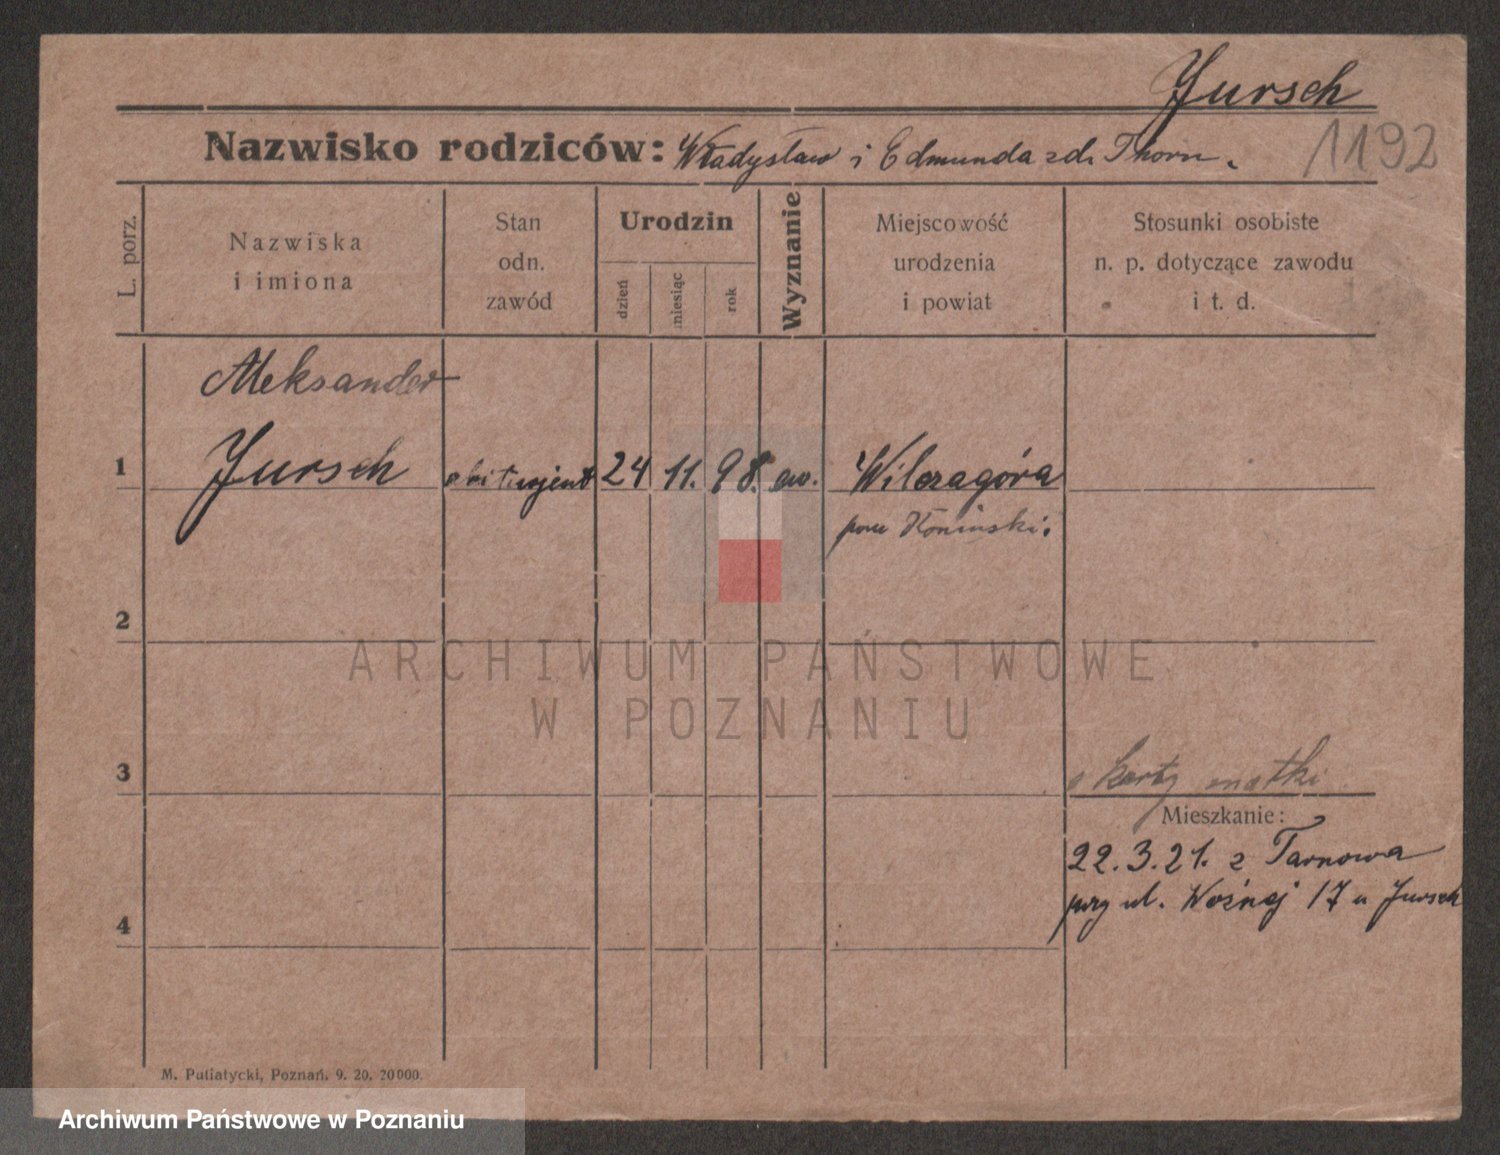 Jursch
1192
Nazwisko rodziców: Władysław i Edmunda zd. Thorn.
L. porz.
Nazwiska
i imiona
Stan
odn.
zawód
Urodzin
dzień
miesiąc
rok
Wyznanie
Miejscowość
urodzenia
i powiat
Stosunki osobiste
n. p. dotyczące zawodu
i t. d.
Aleksander
1 Jursch abiturjent 24 11. 98. ew. Wilczagóra
pow Koniński.
2
ARCHIWUM PAŃSTWOWE
W POZNANIU
3
karty matki
Mieszkanie:
22.3.21. z Tarnowa
przy ul. Woźnej 17 u Jursch
4
M. Putiatycki, Poznań. 9. 20. 20000.
Archiwum Państwowe w Poznaniu